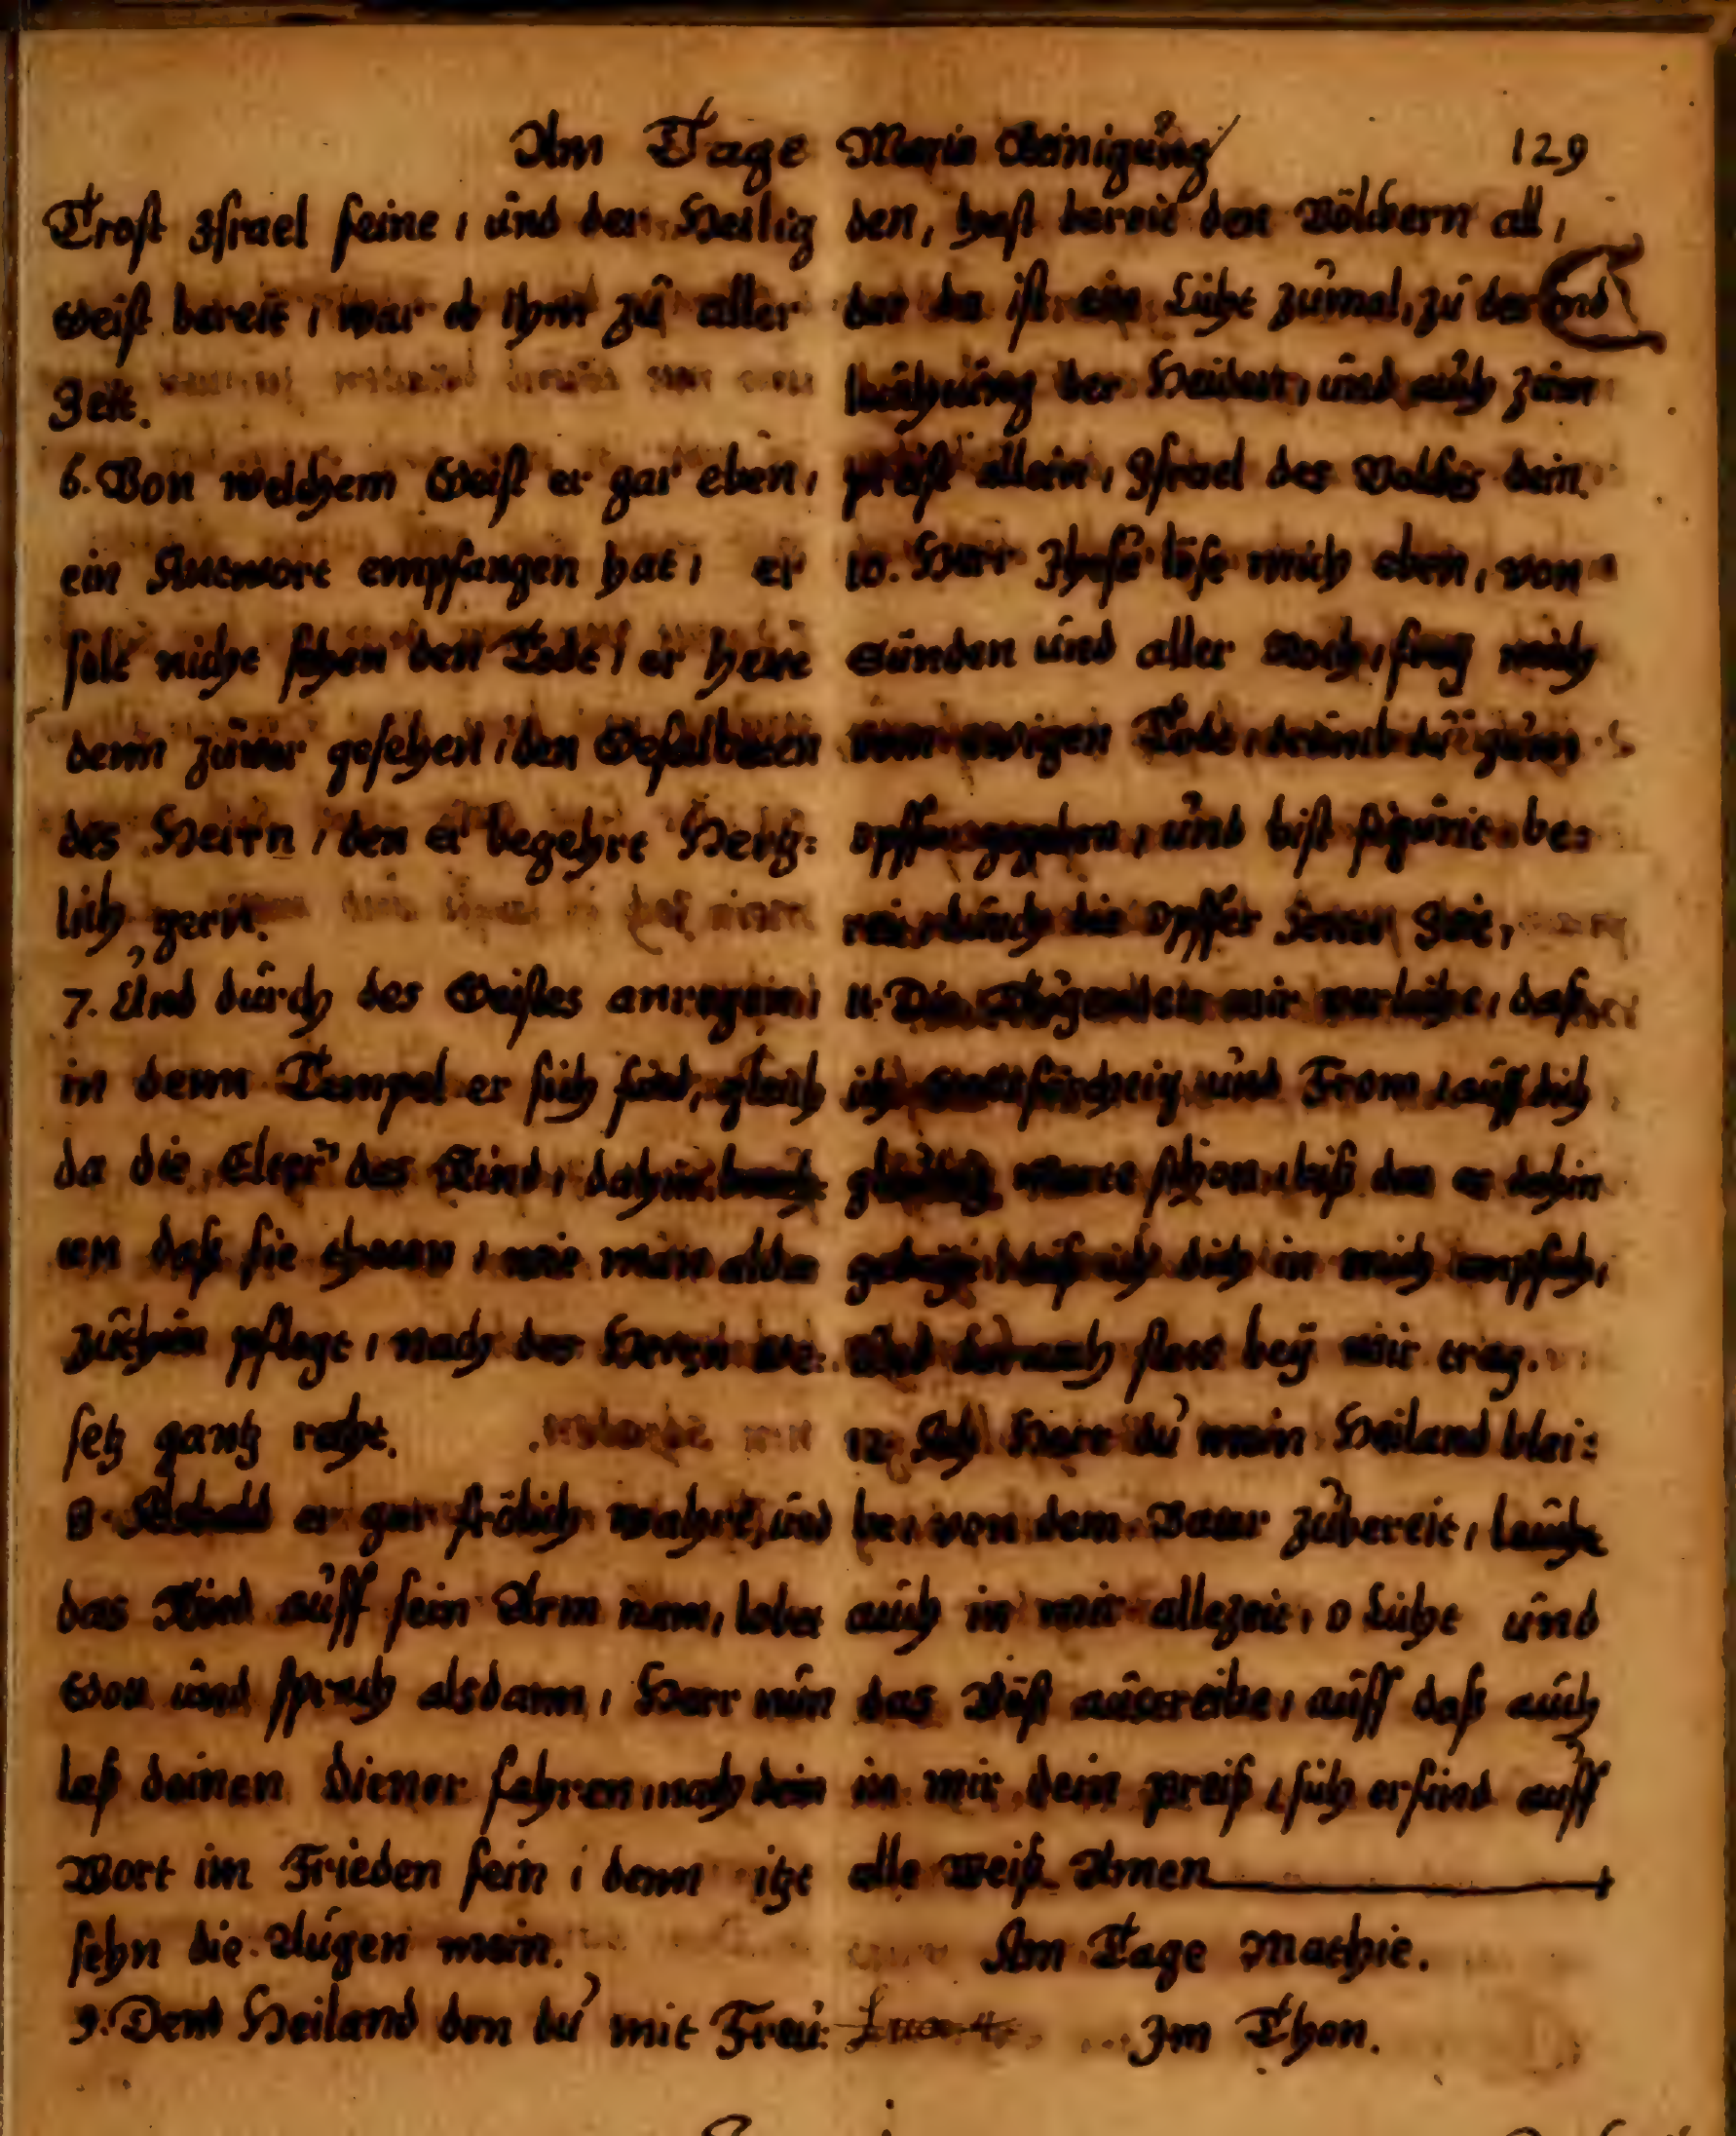 Am Tage Maria Reinigung
129
Trost Israel seine, und der Heilig
Geist bereit, war do Ihm zu aller
Zeit.
6. Von welchem Geist er gar eben,
ein Antwort empfangen hat, er
solt nicht sehen den Todt, er hette
denn zuvor gesehen, den Gesalbeten
des Herrn, den er begehrt Hertz=
lich gern.
7. Und durch des Geistes anregein,
in denn Tempel er sich fand, gleich
da die Elter das Kind, dahin
um daß sie theten, wie man alda
zuthun pflegt, nach des Herren Ge=
setz gantz recht.
8. Alsbald er gar frölich wahrt, und
das Kind auff sein Arm nam, lobet
Gott und sprach alsdann, Herr nun
laß deinen Diener fahren, nach dein
Wort im Frieden fein, denn itzt
sehn die Augen mein.
9. Denn Heiland den du mit Freu=
den, hast bereit den Völckern all,
der da ist ein Licht zumal, zu der
der Heiden, und auch zum
preist allein, Israel des Volckes dein.
10. Herr Jhesu löse mich eben, von
Sünden und aller Noth, frey mich
vom ewigen Tode,
opffer gegeben, und bist figurit be=
reit, durch die Opffer jener Zeit,
11. Die Thugenden mir verleihe, daß
ich Gottsfürchtig und From, auff dich
warte schon, biß der er dahin
daß ich dich in mich empfeh,
Und darnach stets bey mir trag.
12. Ach Herr du mein Heiland blei=
be, von dem Vater zubereit, leucht
auch in mir allezeit, o Licht und
das Böst austreibe, auff daß auch
in mir dein preiß, sich erfind auff
alle weiß. Amen
Am Tage Mathie.
Im Thon.